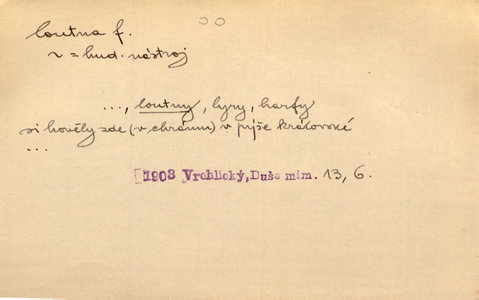 loutna f.
~ = hud. nástroj
..., loutny, lyry, harfy
si hověly zde (v chrámu) v pýše královské
...
[1903 Vrchlický, Duše mim. 13, 6.